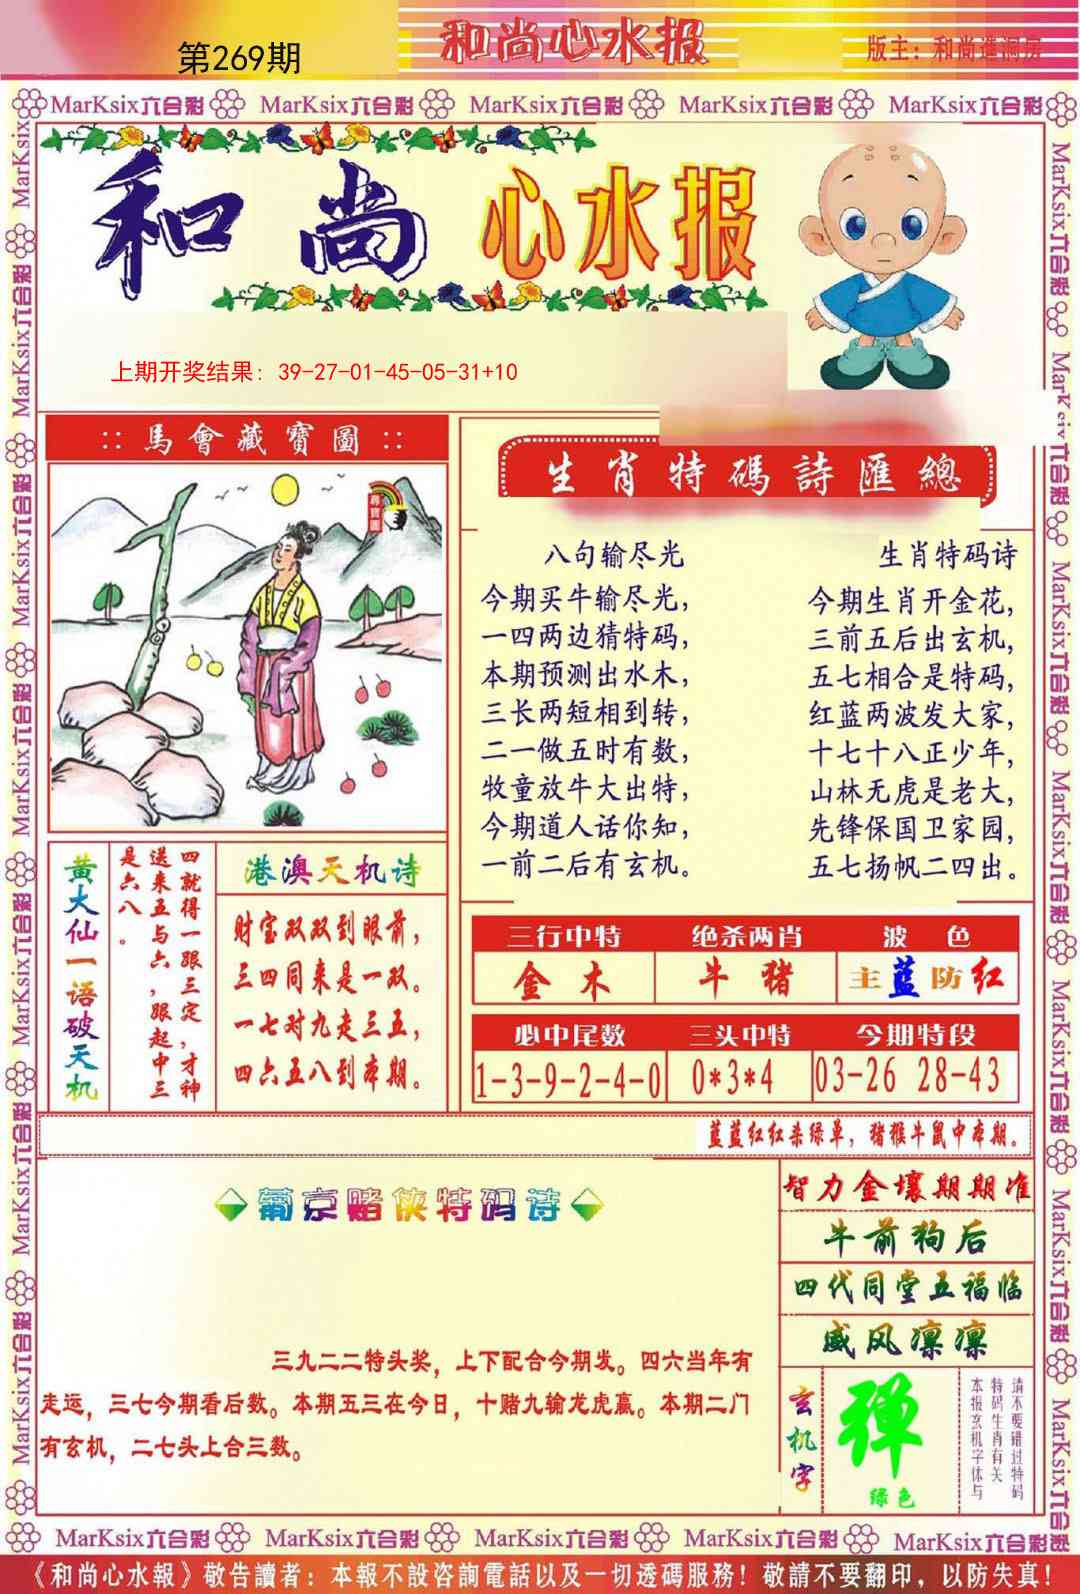 第269期
和尚心水报
版主：和尚進洞房
MarKsix六合彩 MarKsix六合彩 MarKsix六合彩 MarKsix六合彩 MarKsix六合彩
和尚心水报
上期开奖结果: 39-27-01-45-05-31+10
::馬會藏寶圖::
尋寶圖
生肖特碼詩匯總
八句输尽光
今期买牛输尽光，
一四两边猜特码，
本期预测出水木，
三长两短相到转，
二一做五时有数，
牧童放牛大出特，
今期道人话你知，
一前二后有玄机。
生肖特码诗
今期生肖开金花，
三前五后出玄机，
五七相合是特码，
红蓝两波发大家，
十七十八正少年，
山林无虎是老大，
先锋保国卫家园，
五七扬帆二四出。
黄大仙一语破天机
四就得一跟三定，才神
送来五与六，跟起中三
是六八。
港澳天机诗
财宝双双到眼前，
三四同来是一双。
一七对九走三五，
四六五八到本期。
三行中特 绝杀两肖 波色
金木 牛猪 主蓝防红
必中尾数 三头中特 今期特段
1-3-9-2-4-0 0*3*4 03-26 28-43
蓝蓝红红杀绿单，猪猴牛鼠中本期。
葡京赌侠特码诗
三九二二特头奖，上下配合今期发。四六当年有
走运，三七今期看后数。本期五三在今日，十赌九输龙虎赢。本期二门
有玄机，二七头上合三数。
智力金壤期期准
牛前狗后
四代同堂五福临
威风凛凛
玄机字
弹
绿色
请不要错过特码
特码生肖有关
本报玄机字体与
MarKsix六合彩 MarKsix六合彩 MarKsix六合彩 MarKsix六合彩 MarKsix六合彩
《和尚心水報》敬告讀者：本報不設咨詢電話以及一切透碼服務！敬請不要翻印，以防失真！